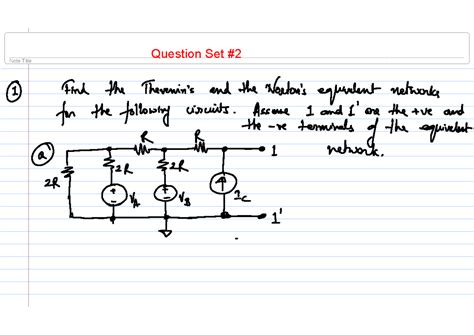 Question Set #2
Note Title
① Find the Thevenin's and the Norton's equivalent networks
for the following circuits. Assume 1 and 1' are the +ve and
the -ve terminals of the equivalent
network.
ⓐ
R R 1
2R 2R 2R
+ - VA + - VB IC
1'